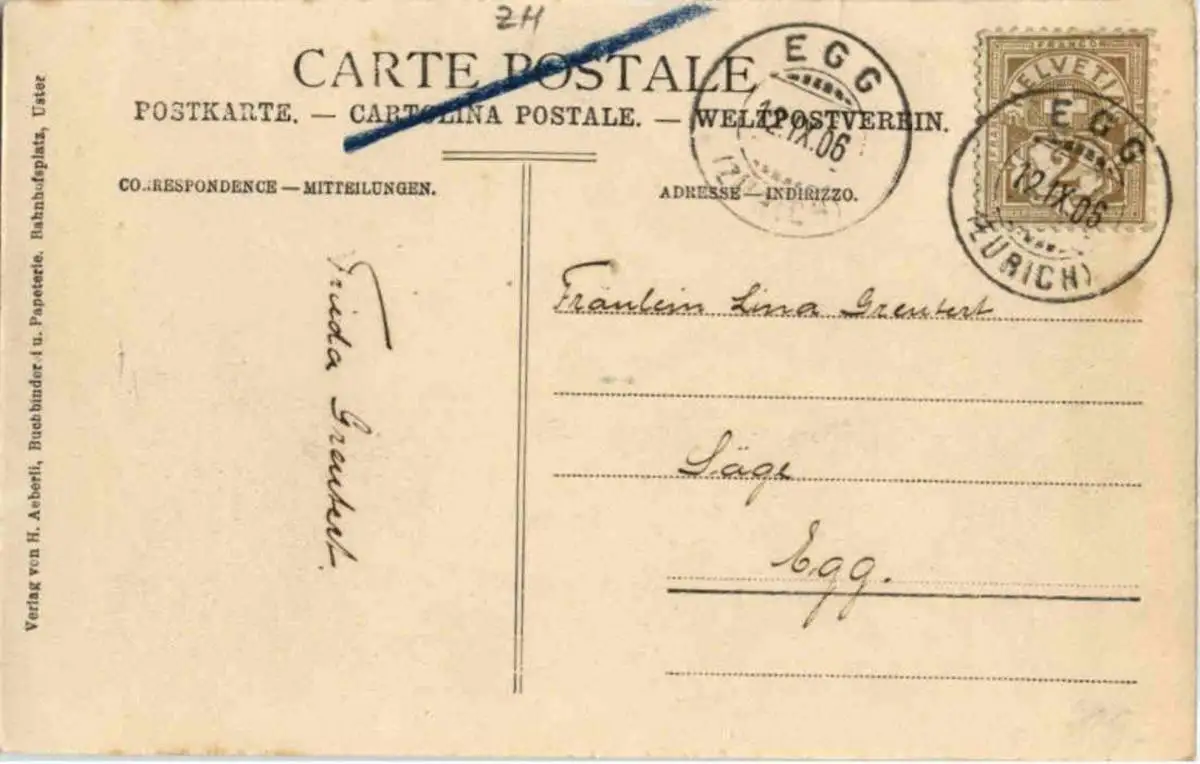 ZH
CARTE POSTALE
POSTKARTE. — CARTOLINA POSTALE. — WELTPOSTVEREIN.
CORRESPONDENCE — MITTEILUNGEN.
ADRESSE — INDIRIZZO.
EGG
12.IX.06
FRANCO
HELVETIA
2
EGG
12.IX.06
(ZÜRICH)
Fräulein Lina Greutert
Säge
Egg.
Frida Greutert.
Verlag von H. Aeberli, Buchbinderei u. Papeterie. Bahnhofsplatz, Uster